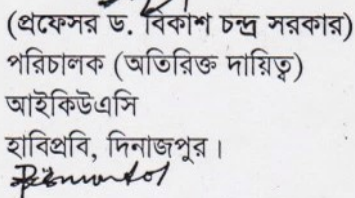 (প্রফেসর ড. বিকাশ চন্দ্র সরকার)
পরিচালক (অতিরিক্ত দায়িত্ব)
আইকিউএসি
হাবিপ্রবি, দিনাজপুর।